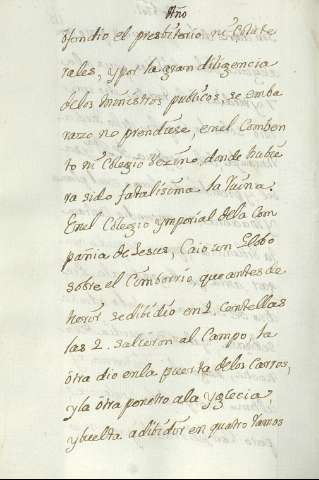 Año
ofendio el presbiterio ni Colate
rales, y por la gran diligencia
de los ministros publicos, se emba
razo no prendiese, en el Comben
to ni Colegio Vezino, donde hubie
ra sido fatalisima la ruina.
En el Colegio ymperial de la Com
pañia de Jesus, Caio un Globo
sobre el Comborrio, que antes de
se dibidio en 4 Centellas
las 2. salieron al Campo, la
otra dio en la puerta de los Carros,
y la otra penetro a la yglecia,
y buelta a dibidir en quatro ramos